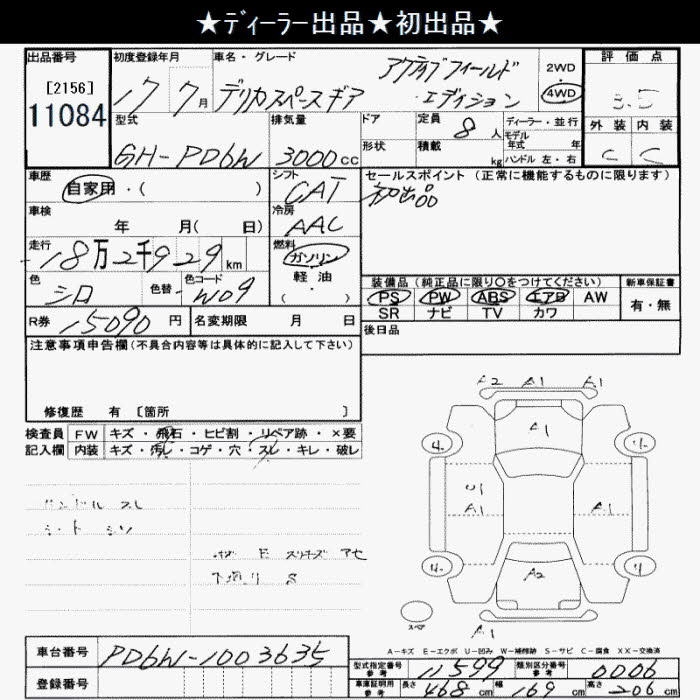 ★ディーラー出品★初出品★
出品番号
[2156]
11084
初度登録年月
17 7月
車名・グレード
アクティブフィールド
デリカスペースギア エディション
2WD
4WD
評価点
3.5
型式
GH-PD6W
排気量
3000cc
ドア
形状
定員 8人
積載 kg
ディーラー・並行
モデル年式 年
ハンドル 左・右
外装 内装
C C
車歴
自家用・( )
シフト
CAT
セールスポイント(正常に機能するものに限ります)
初出品
車検
年 月( 日)
冷房
AAC
走行
18万2千929km
燃料
ガソリン
軽油
( ・ )
色
シロ
色替
色コード
W09
装備品(純正品に限り○をつけてください)
PS PW ABS エアB AW
SR ナビ TV カワ
新車保証書
有・無
R券 15090円
名変期限 月 日
後日品
注意事項申告欄(不具合内容等は具体的に記入して下さい)
修復歴 有 [箇所 ]
検査員 FW キズ・飛石・ヒビ割・リペア跡・×要
記入欄 内装 キズ・汚レ・コゲ・穴・スレ・キレ・破レ
ハンドル スレ
シート シワ
下廻り S
A2 A1 A1
A1
4 4
U1
A1 A1
4 4
A2
スペア
A1
A-キズ E-エクボ U-凹み W-補修跡 S-サビ C-腐食 XX-交換済
車台番号 PD6W-1003635
登録番号
型式指定番号 参考 11599
類別区分番号 参考 0006
車庫証明用 参考 長さ 468cm 幅 169cm 高さ 206cm